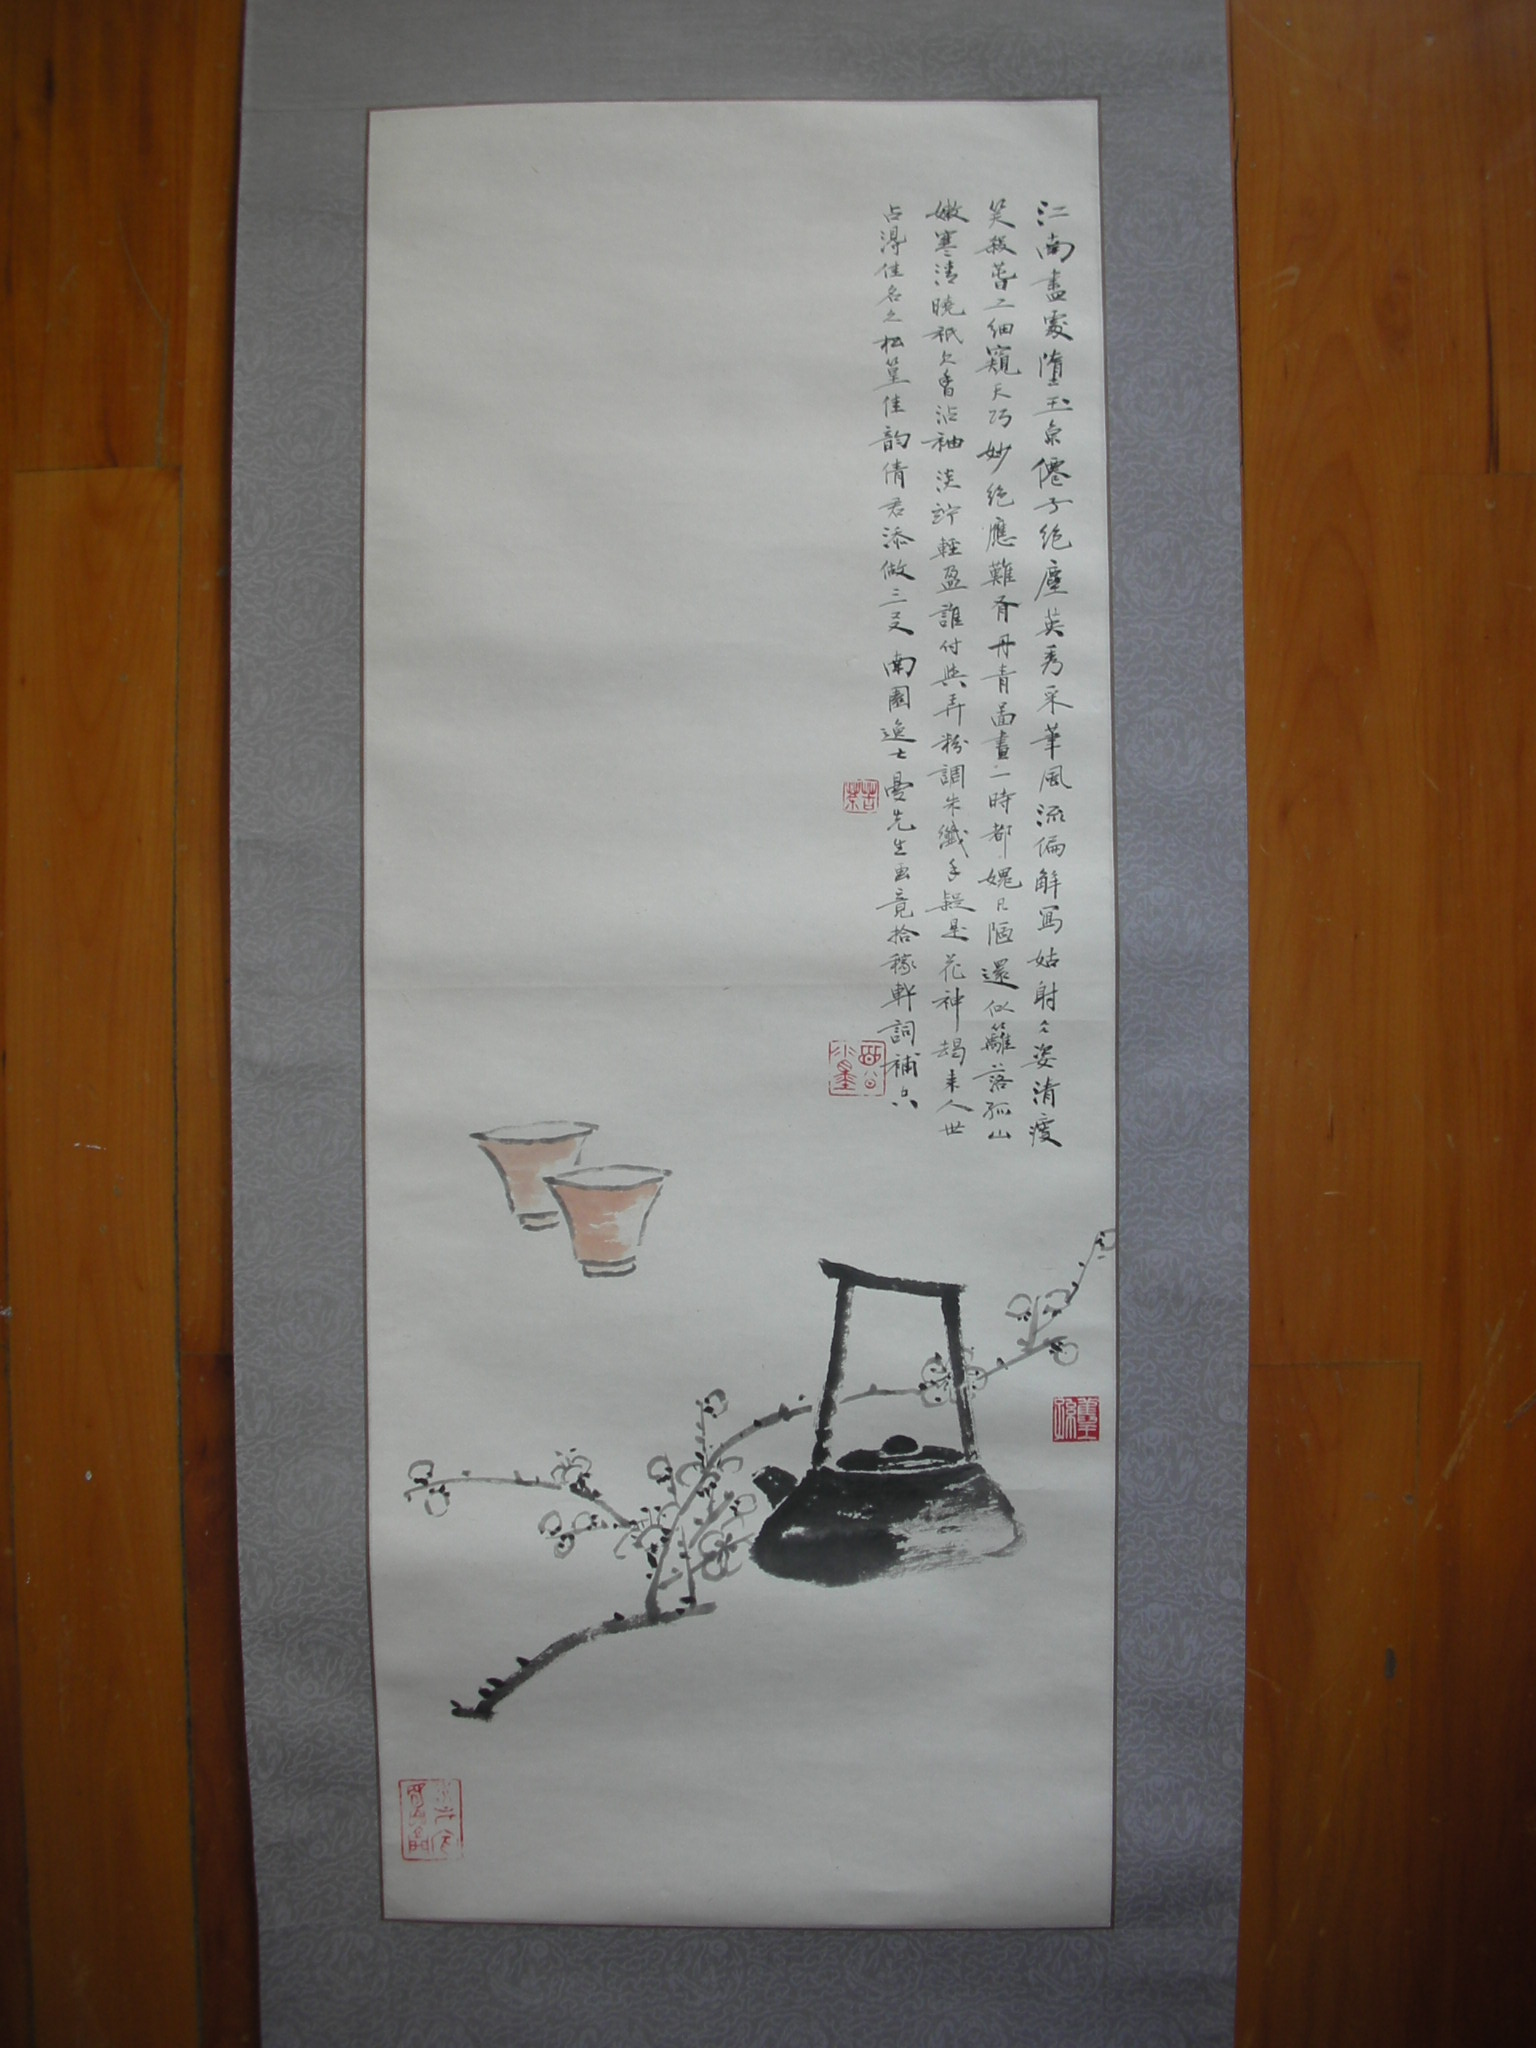 江南盡處墮玉京僊子絕塵英秀采筆風流偏解寫姑射冬姿清瘦
笑殺蓍工細窺天巧妙絕應難有丹青圖畫一時都愧凡陋還似籬落孤山
嫩寒清曉祇欠香沾袖淡竚輕盈誰付與弄粉調朱纖手疑是花神朅來人世
占得佳名久松篁佳韵倩君添做三友 南園逸士曼先生画竟拾稼軒詞補白
苦茶